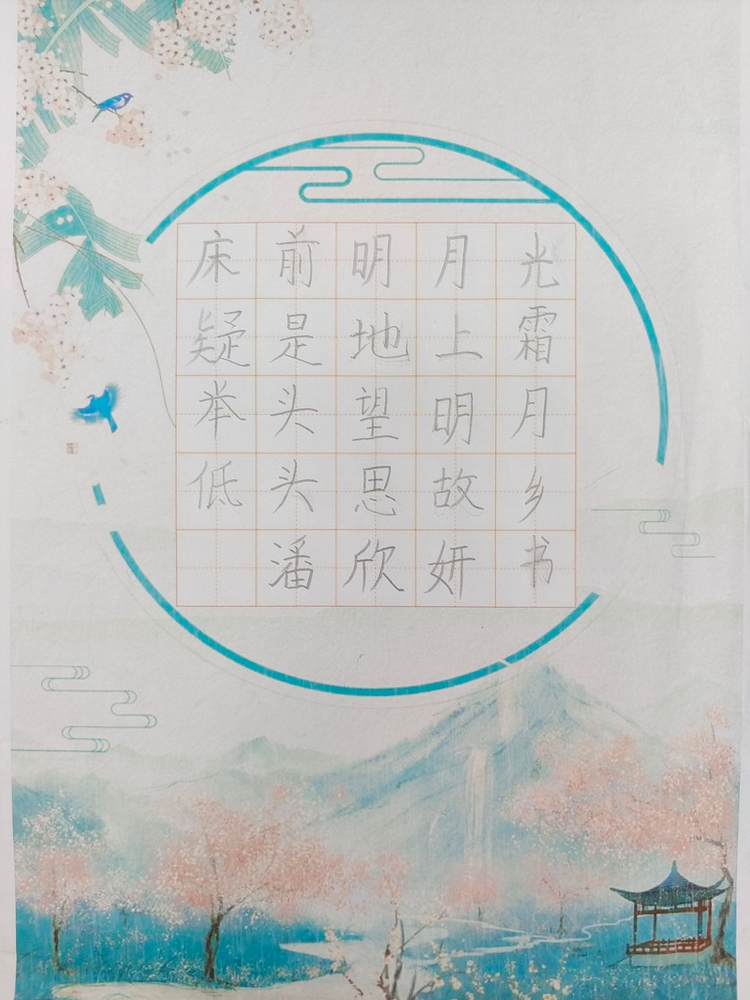 床前明月光
疑是地上霜
举头望明月
低头思故乡
潘欣妍书